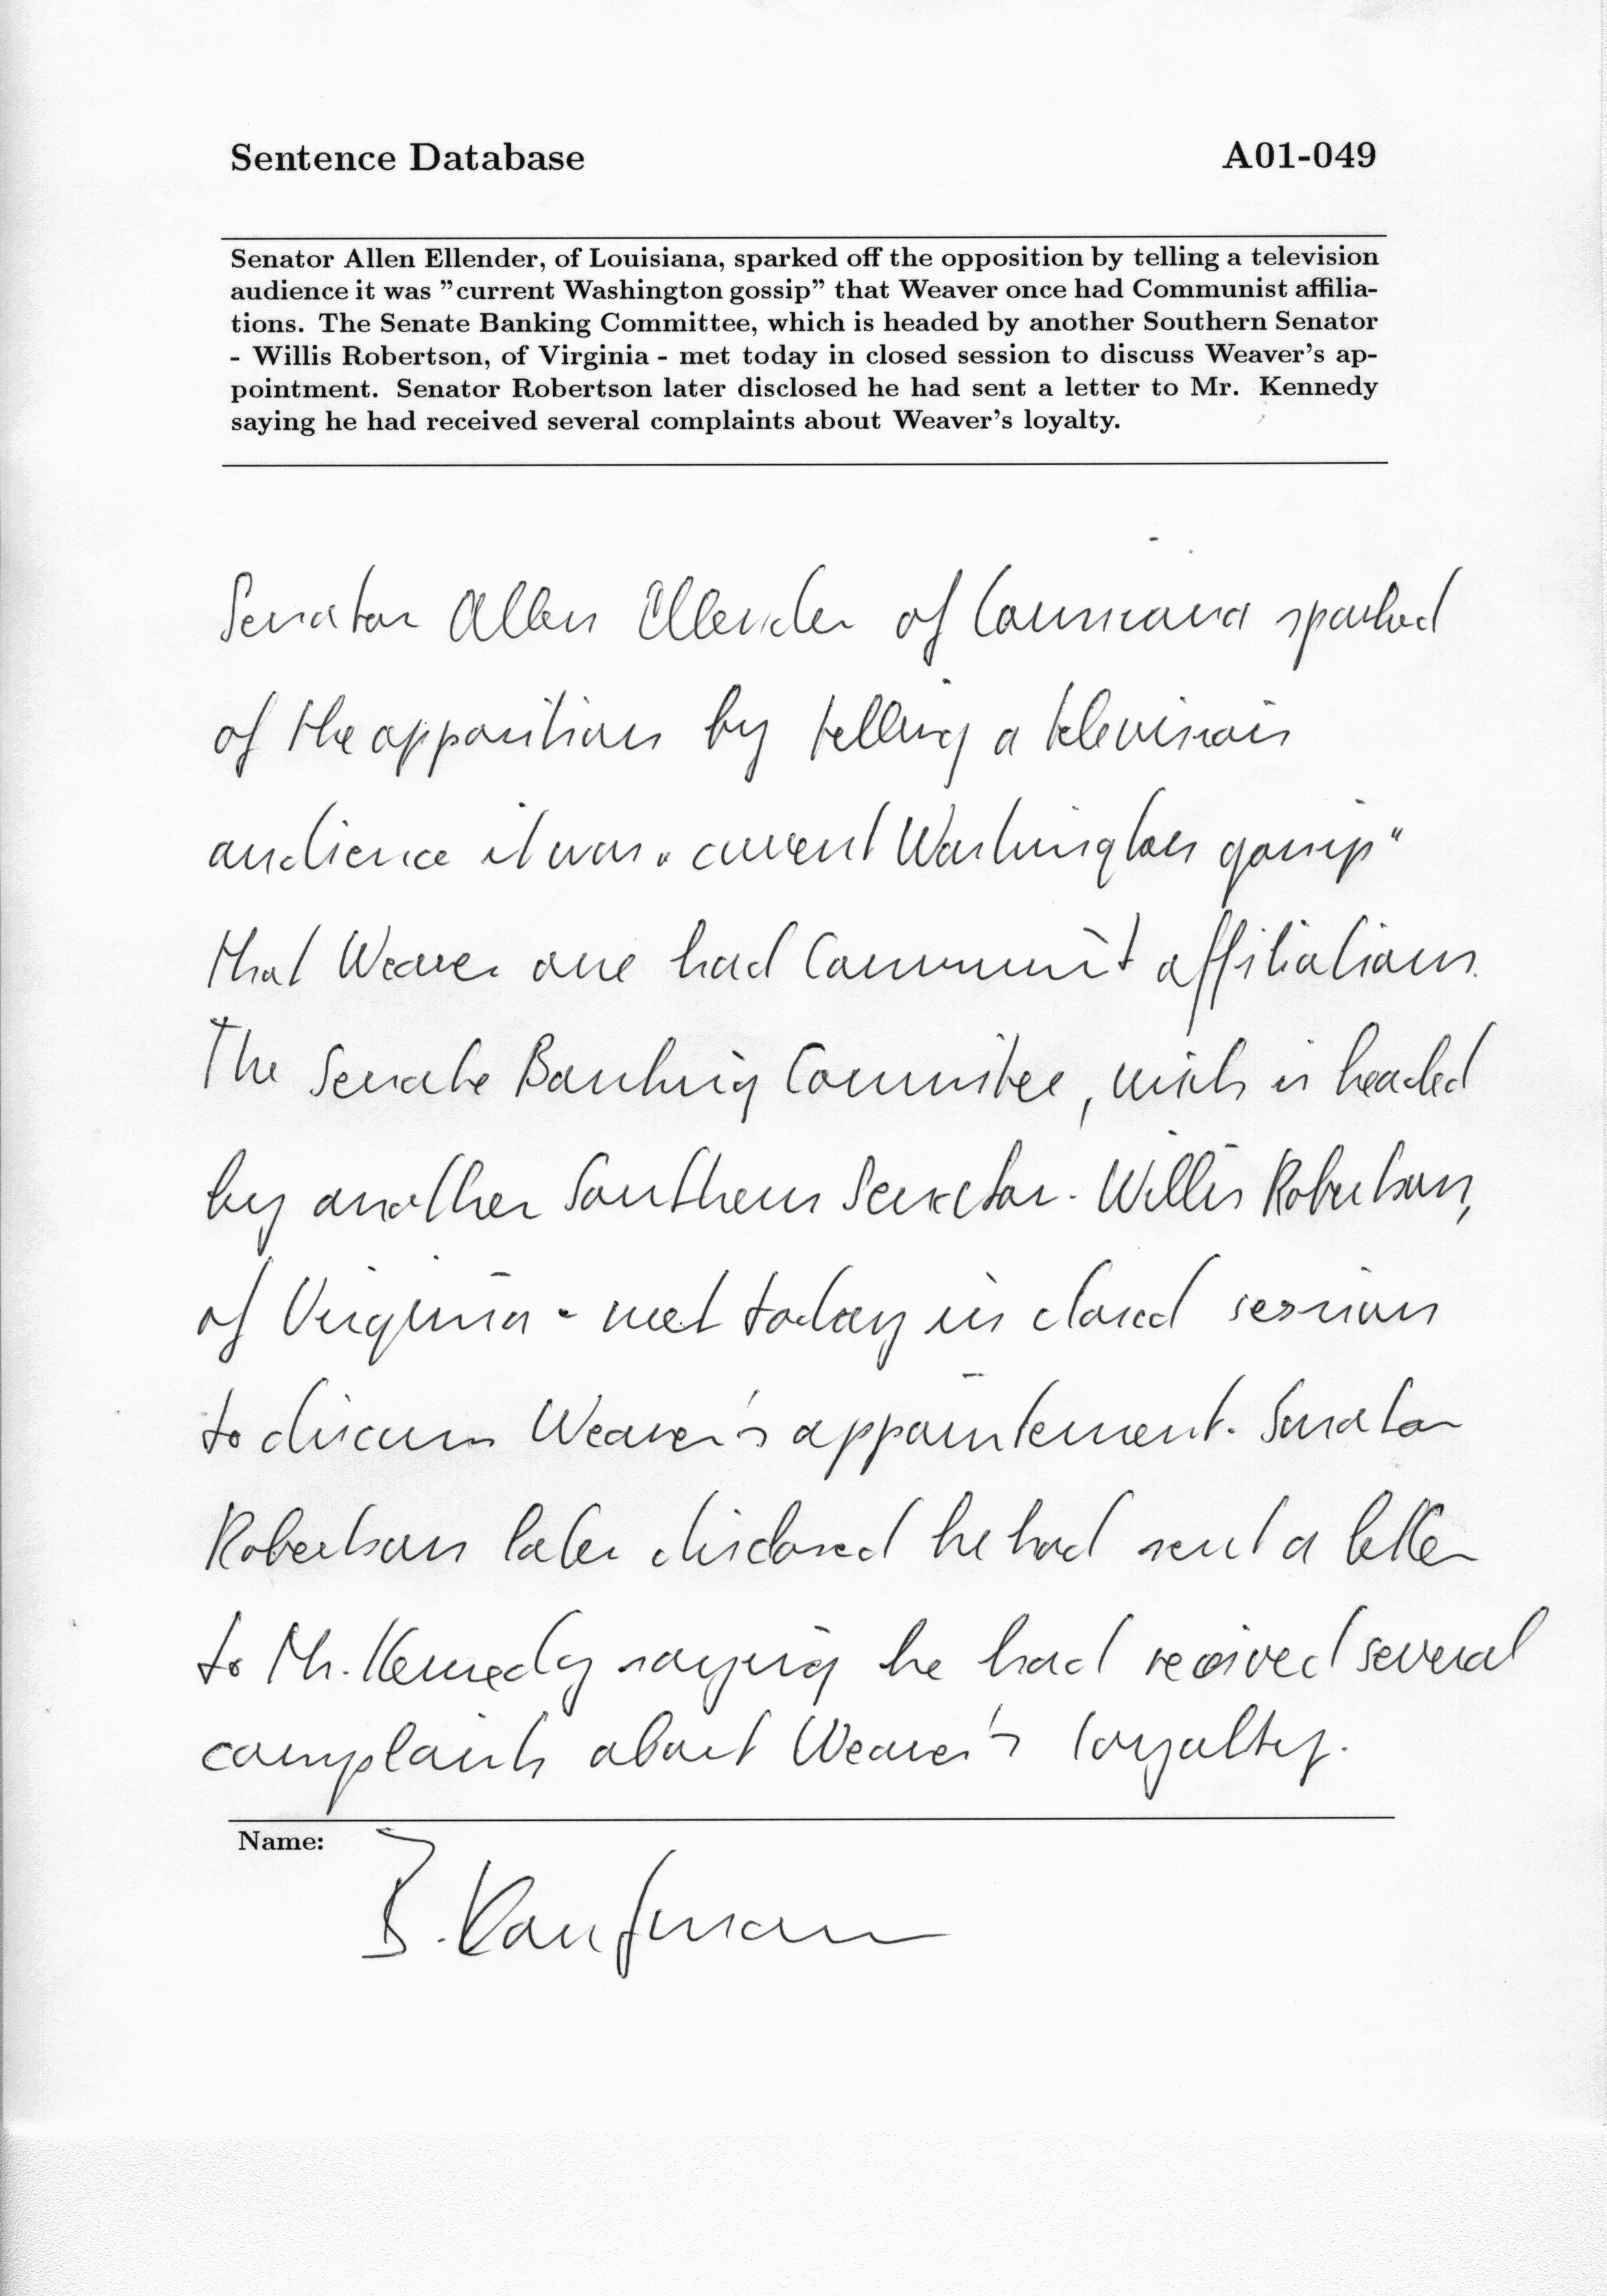 Sentence Database A01-049
Senator Allen Ellender, of Louisiana, sparked off the opposition by telling a television
audience it was ”current Washington gossip” that Weaver once had Communist affilia-
tions. The Senate Banking Committee, which is headed by another Southern Senator
- Willis Robertson, of Virginia - met today in closed session to discuss Weaver's ap-
pointment. Senator Robertson later disclosed he had sent a letter to Mr. Kennedy
saying he had received several complaints about Weaver's loyalty.
Senator Allen Ellender of Louisiana sparked
of the opposition by telling a television
audience it was „current Washington gossip"
that Weaver one had Communist affiliations.
The Senate Banking Committee, wich is headed
by another Southern Senator - Willis Robertson,
of Virginia - met today in closed session
to discuss Weaver's appointement. Senator
Robertson later disclosed he had sent a letter
to Mr. Kennedy saying he had received several
complaints about Weaver's loyalty.
Name:
B. Kaufmann